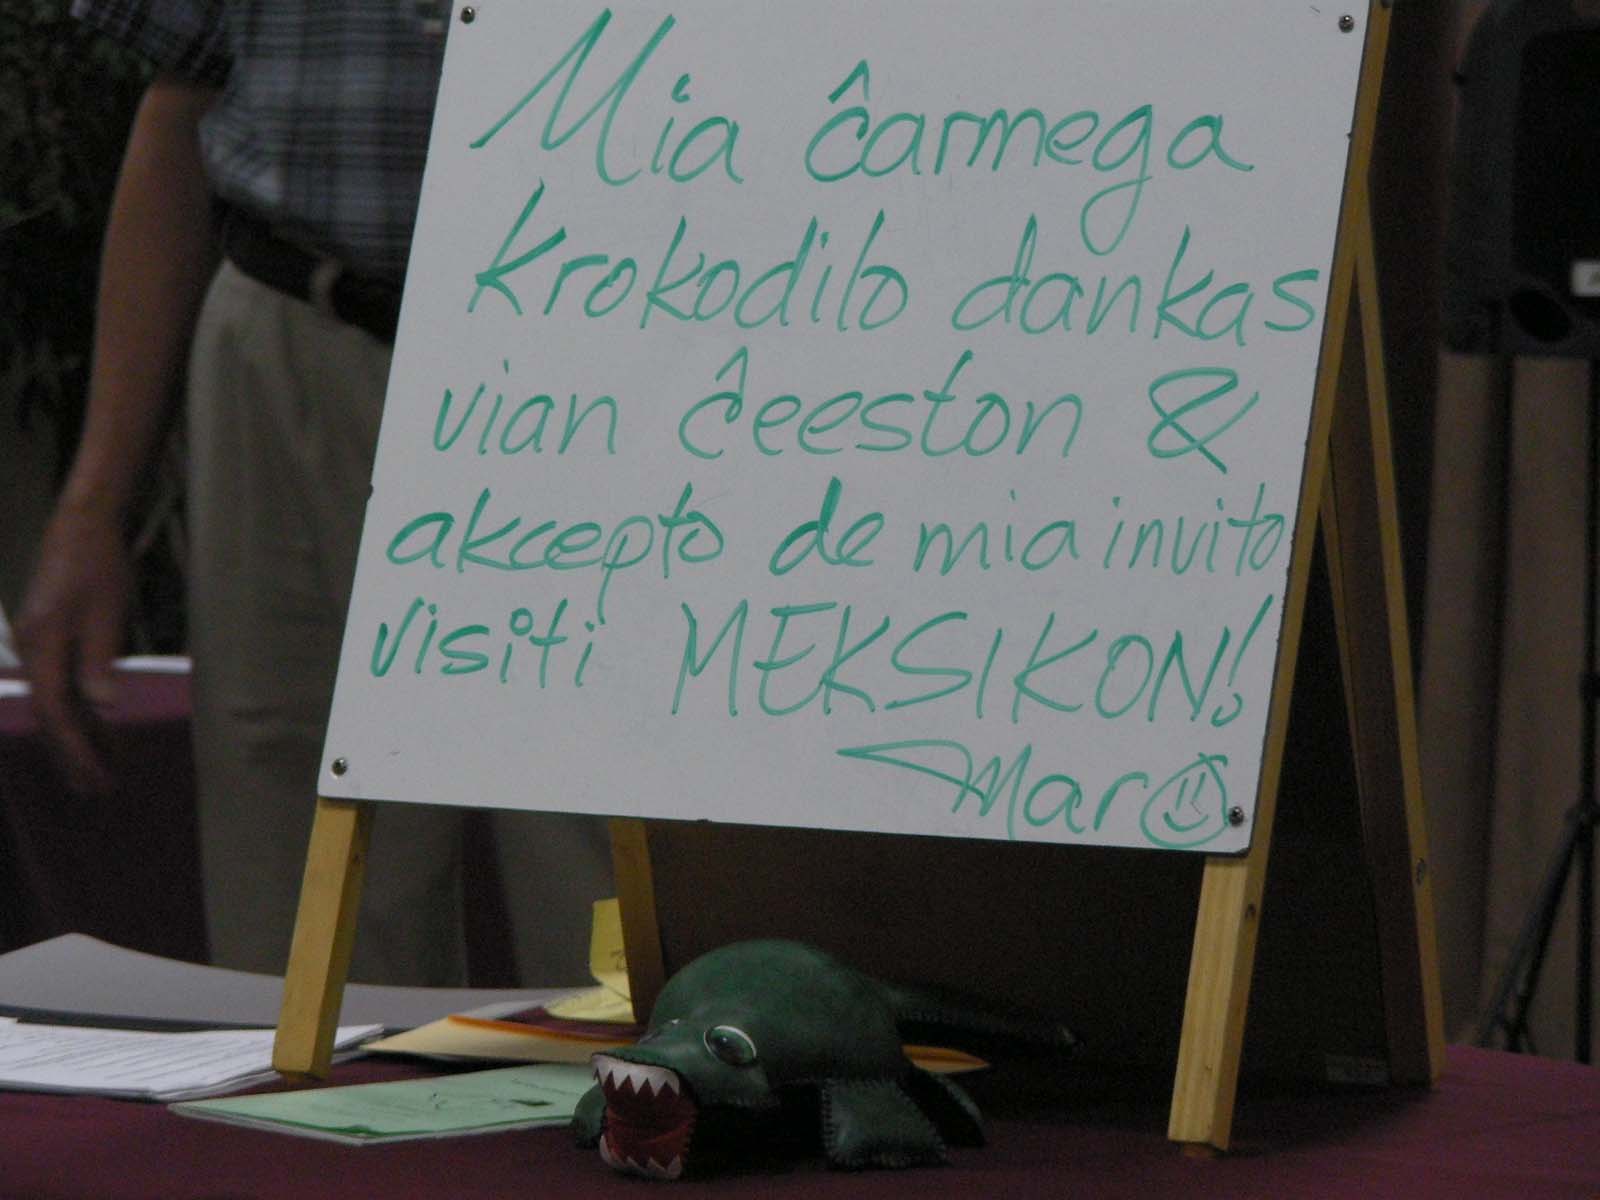 Mia ĉarmega
krokodilo dankas
vian ĉeeston &
akcepto de mia invito
visiti MEKSIKON!
Maro